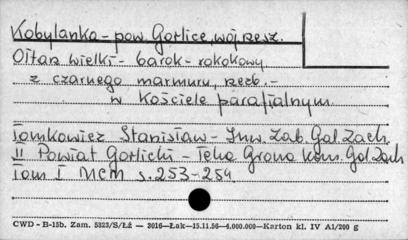 Kobylanka - pow. Gorlice, woj. rzesz.
Ołtarz wielki - barok - rokokowy
z czarnego marmuru, rzeźb. -
w kościele parafialnym.
Tomkowicz Stanisław - Inw. Zab. Gal. Zach.
II Powiat Gorlicki - Teka Grona Kons. Gal. Zach
Tom I MCM s. 253-254.
CWD - B-15b. Zam. 5323/S/Łź — 3016—Łak—15.11.56—4.000.000—Karton kl. IV A1/200 g